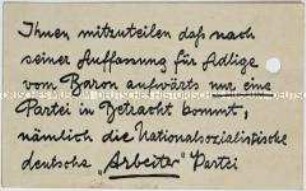 Ihnen mitzuteilen daß nach
seiner Auffassung für Adlige
vom Baron aufwärts nur eine
Partei in Betracht kommt,
nämlich die Nationalsozialistische
deutsche „Arbeiter" Partei